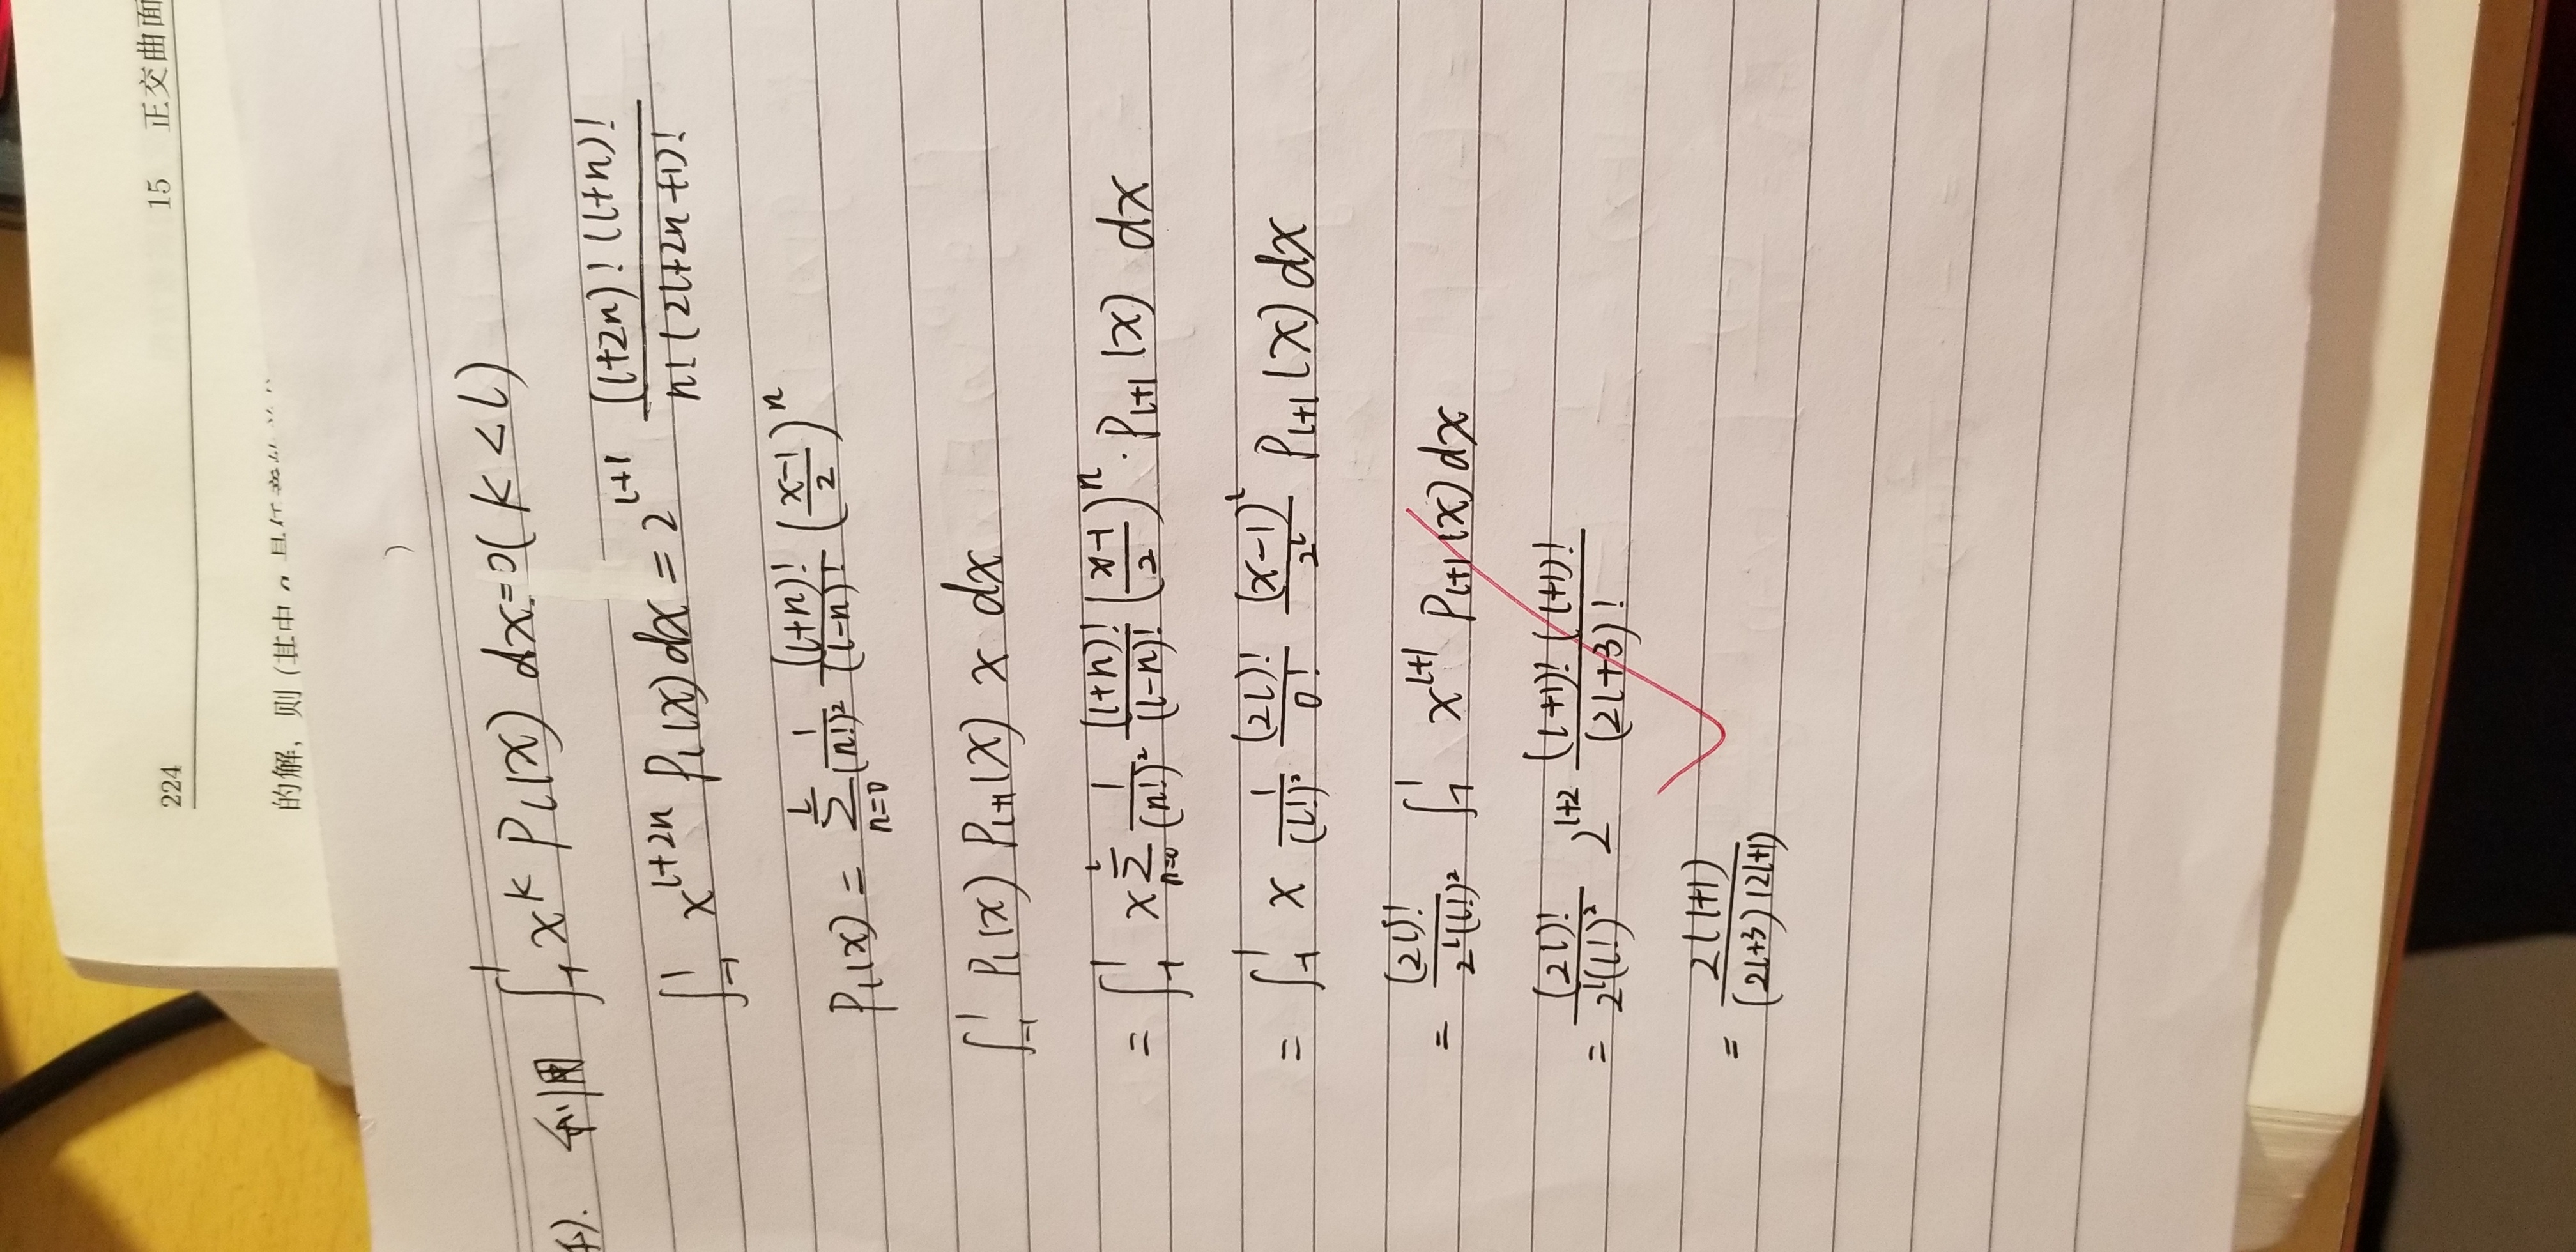 224
15 正交曲面
的解, 则 (其中
利用 ∫_{-1}^{1} x^k P_l(x) dx = 0 (k < l)
∫_{-1}^{1} x^{l+2n} P_l(x) dx = 2^{l+1} \frac{(l+2n)! (l+n)!}{n! (2l+2n+1)!}
P_l(x) = \sum_{n=0}^{l} \frac{1}{(n!)^2} \frac{(l+n)!}{(l-n)!} (\frac{x-1}{2})^n
∫_{-1}^{1} P_l(x) P_{l+1}(x) x dx
= ∫_{-1}^{1} x \sum_{n=0}^{l} \frac{1}{(n!)^2} \frac{(l+n)!}{(l-n)!} (\frac{x-1}{2})^n · P_{l+1}(x) dx
= ∫_{-1}^{1} x \frac{1}{(l!)^2} \frac{(2l)!}{0!} \frac{(x-1)^l}{2^l} P_{l+1}(x) dx
= \frac{(2l)!}{2^l (l!)^2} ∫_{-1}^{1} x^{l+1} P_{l+1}(x) dx
= \frac{(2l)!}{2^l (l!)^2} 2^{l+2} \frac{(l+1)! (l+1)!}{(2l+3)!}
= \frac{2(l+1)}{(2l+3)(2l+1)}